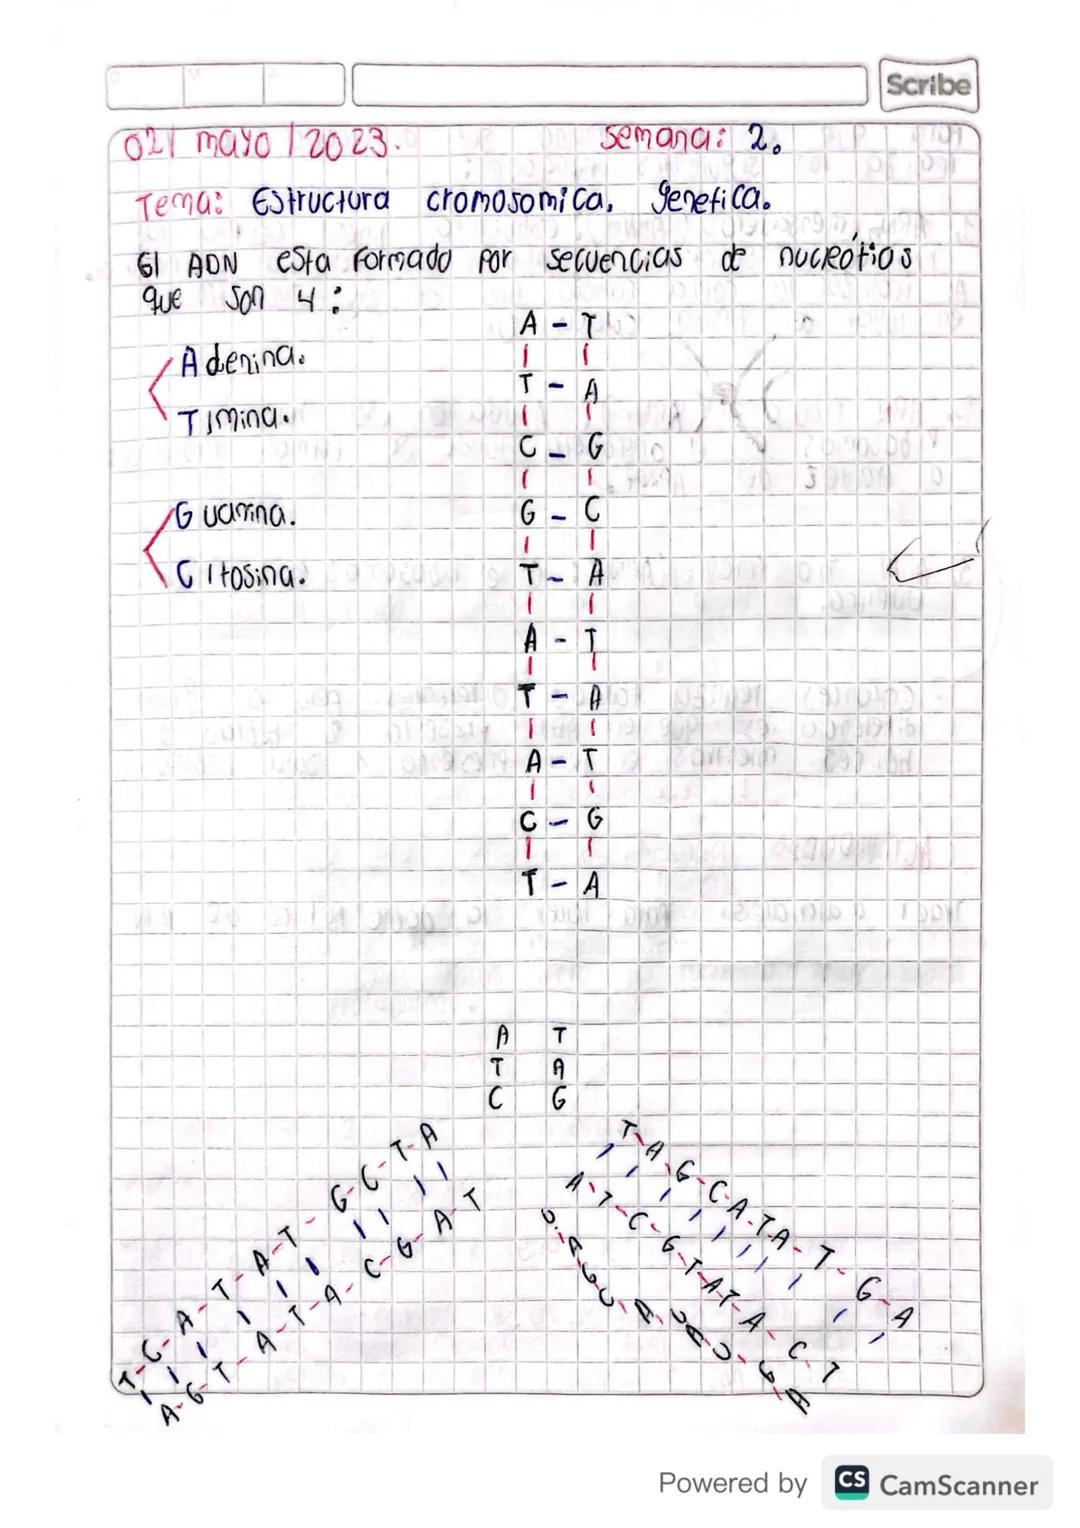 Scribe
02/ mayo /2023. Semana: 2.
Tema: Estructura cromosomica. Genetica.
El ADN esta formado por secuencias de nucleótios
que son 4:
Adenina.
Timina.
Guanina.
Citosina.
A - T
T - A
C - G
G - C
T - A
A - T
T - A
A - T
C - G
T - A
A T
T A
C G
T-C-A-T-A-T-G-C-T-A
A-G-T-A-T-A-C-G-A-T
T-A-G-C-A-T-A-T-G-A
A-T-C-G-T-A-T-A-C-T
U-A-G-C-A-U-A-U-G-A
Powered by CS CamScanner